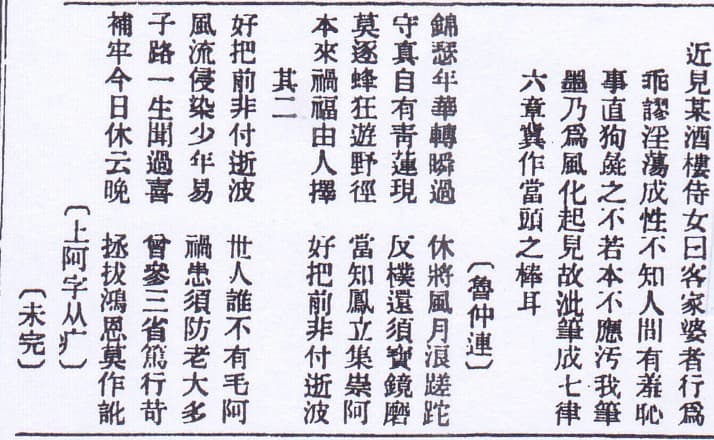 近見某酒樓侍女曰客家婆者行爲
乖謬淫蕩成性不知人間有羞恥
事直狗彘之不若本不應污我筆
墨乃爲風化起見故泚筆成七律
六章冀作當頭之棒耳
〔魯仲連〕
錦瑟年華轉瞬過　休將風月浪蹉跎
守真自有靑蓮現　反樸還須寶鏡磨
莫逐蜂狂遊野徑　當知鳳立集崇阿
本來禍福由人擇　好把前非付逝波
其二
好把前非付逝波　世人誰不有毛阿
風流侵染少年易　禍患須防老大多
子路一生聞過喜　曾參三省篤行苛
補牢今日休云晚　拯拔鴻恩莫作訛
〔上阿字从疒〕
〔未完〕